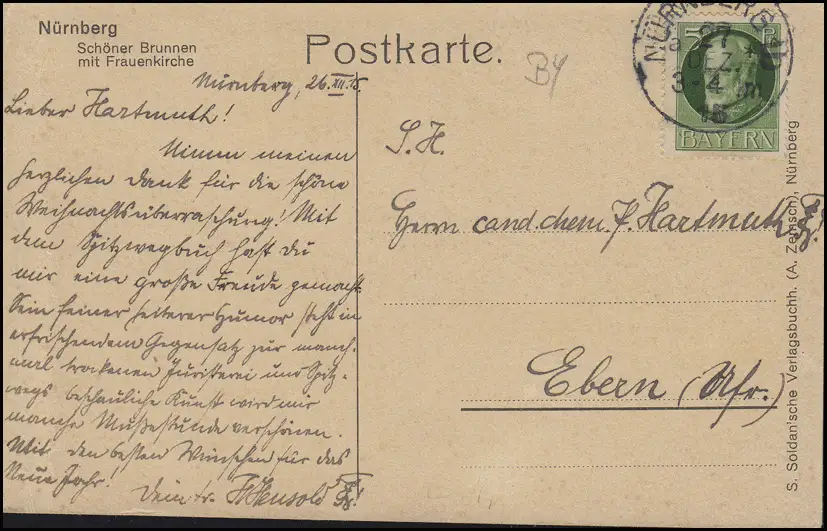 Nürnberg
Schöner Brunnen
mit Frauenkirche
Postkarte.
B4
NÜRNBERG
27
DEZ.
3-4 N
15
5 P
BAYERN
Nürnberg, 26.XII.15.
Lieber Hartmuth!
Nimm meinen
herzlichen Dank für die schöne
Weihnachtsüberraschung! Mit
dem Spitzwegbuch hast du
mir eine große Freude gemacht.
Sein feiner heiterer Humor steht in
erfrischendem Gegensatz zur manch-
mal trockenen Juristerei und Spitz-
wegs beschauliche Kunst wird mir
manche Mußestunde verschönen.
Mit den besten Wünschen für das
Neue Jahr!
Dein tr. Hensold
S. H.
Herrn cand. chem. F. Hartmuth
Ebern (Ufr.)
S. Soldan'sche Verlagsbuchh. (A. Zemsch), Nürnberg